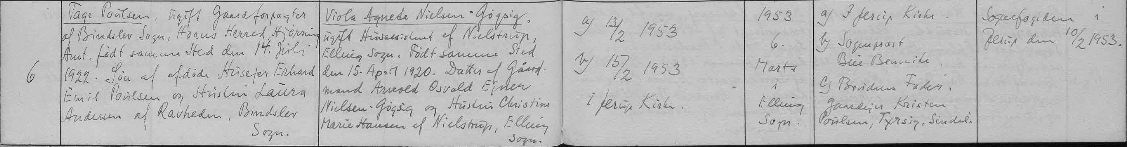 6
Tage Poulsen, ugift Gaardforpagter
af Bindslev Sogn, Horns Herred, Hjørring
Amt, født samme Sted den 14. Juli
1922. Søn af afdøde Husejer Erhard
Emil Poulsen og Hustru Laura
Andersen af Ravheden, Bindslev
Sogn.
Viola Agnete Nielsen-Gøgsig,
ugift Husassistent af Nielstrup,
Elling Sogn. Født samme Sted
den 15. April 1920. Datter af Gaard-
mand Arnold Osvald Ejner
Nielsen-Gøgsig og Hustru Christine
Marie Hansen af Nielstrup, Elling
Sogn.
a) 13/2 1953
b) 15/2 1953
i Jerup Kirke.
1953
6.
Marts
i
Elling
Sogn.
a) I Jerup Kirke.
b) Sognepræst
c) Brudens Fader.
Gaardejer Kristen
Poulsen,
Sognefogden i
Jerup den 10/2 1953.